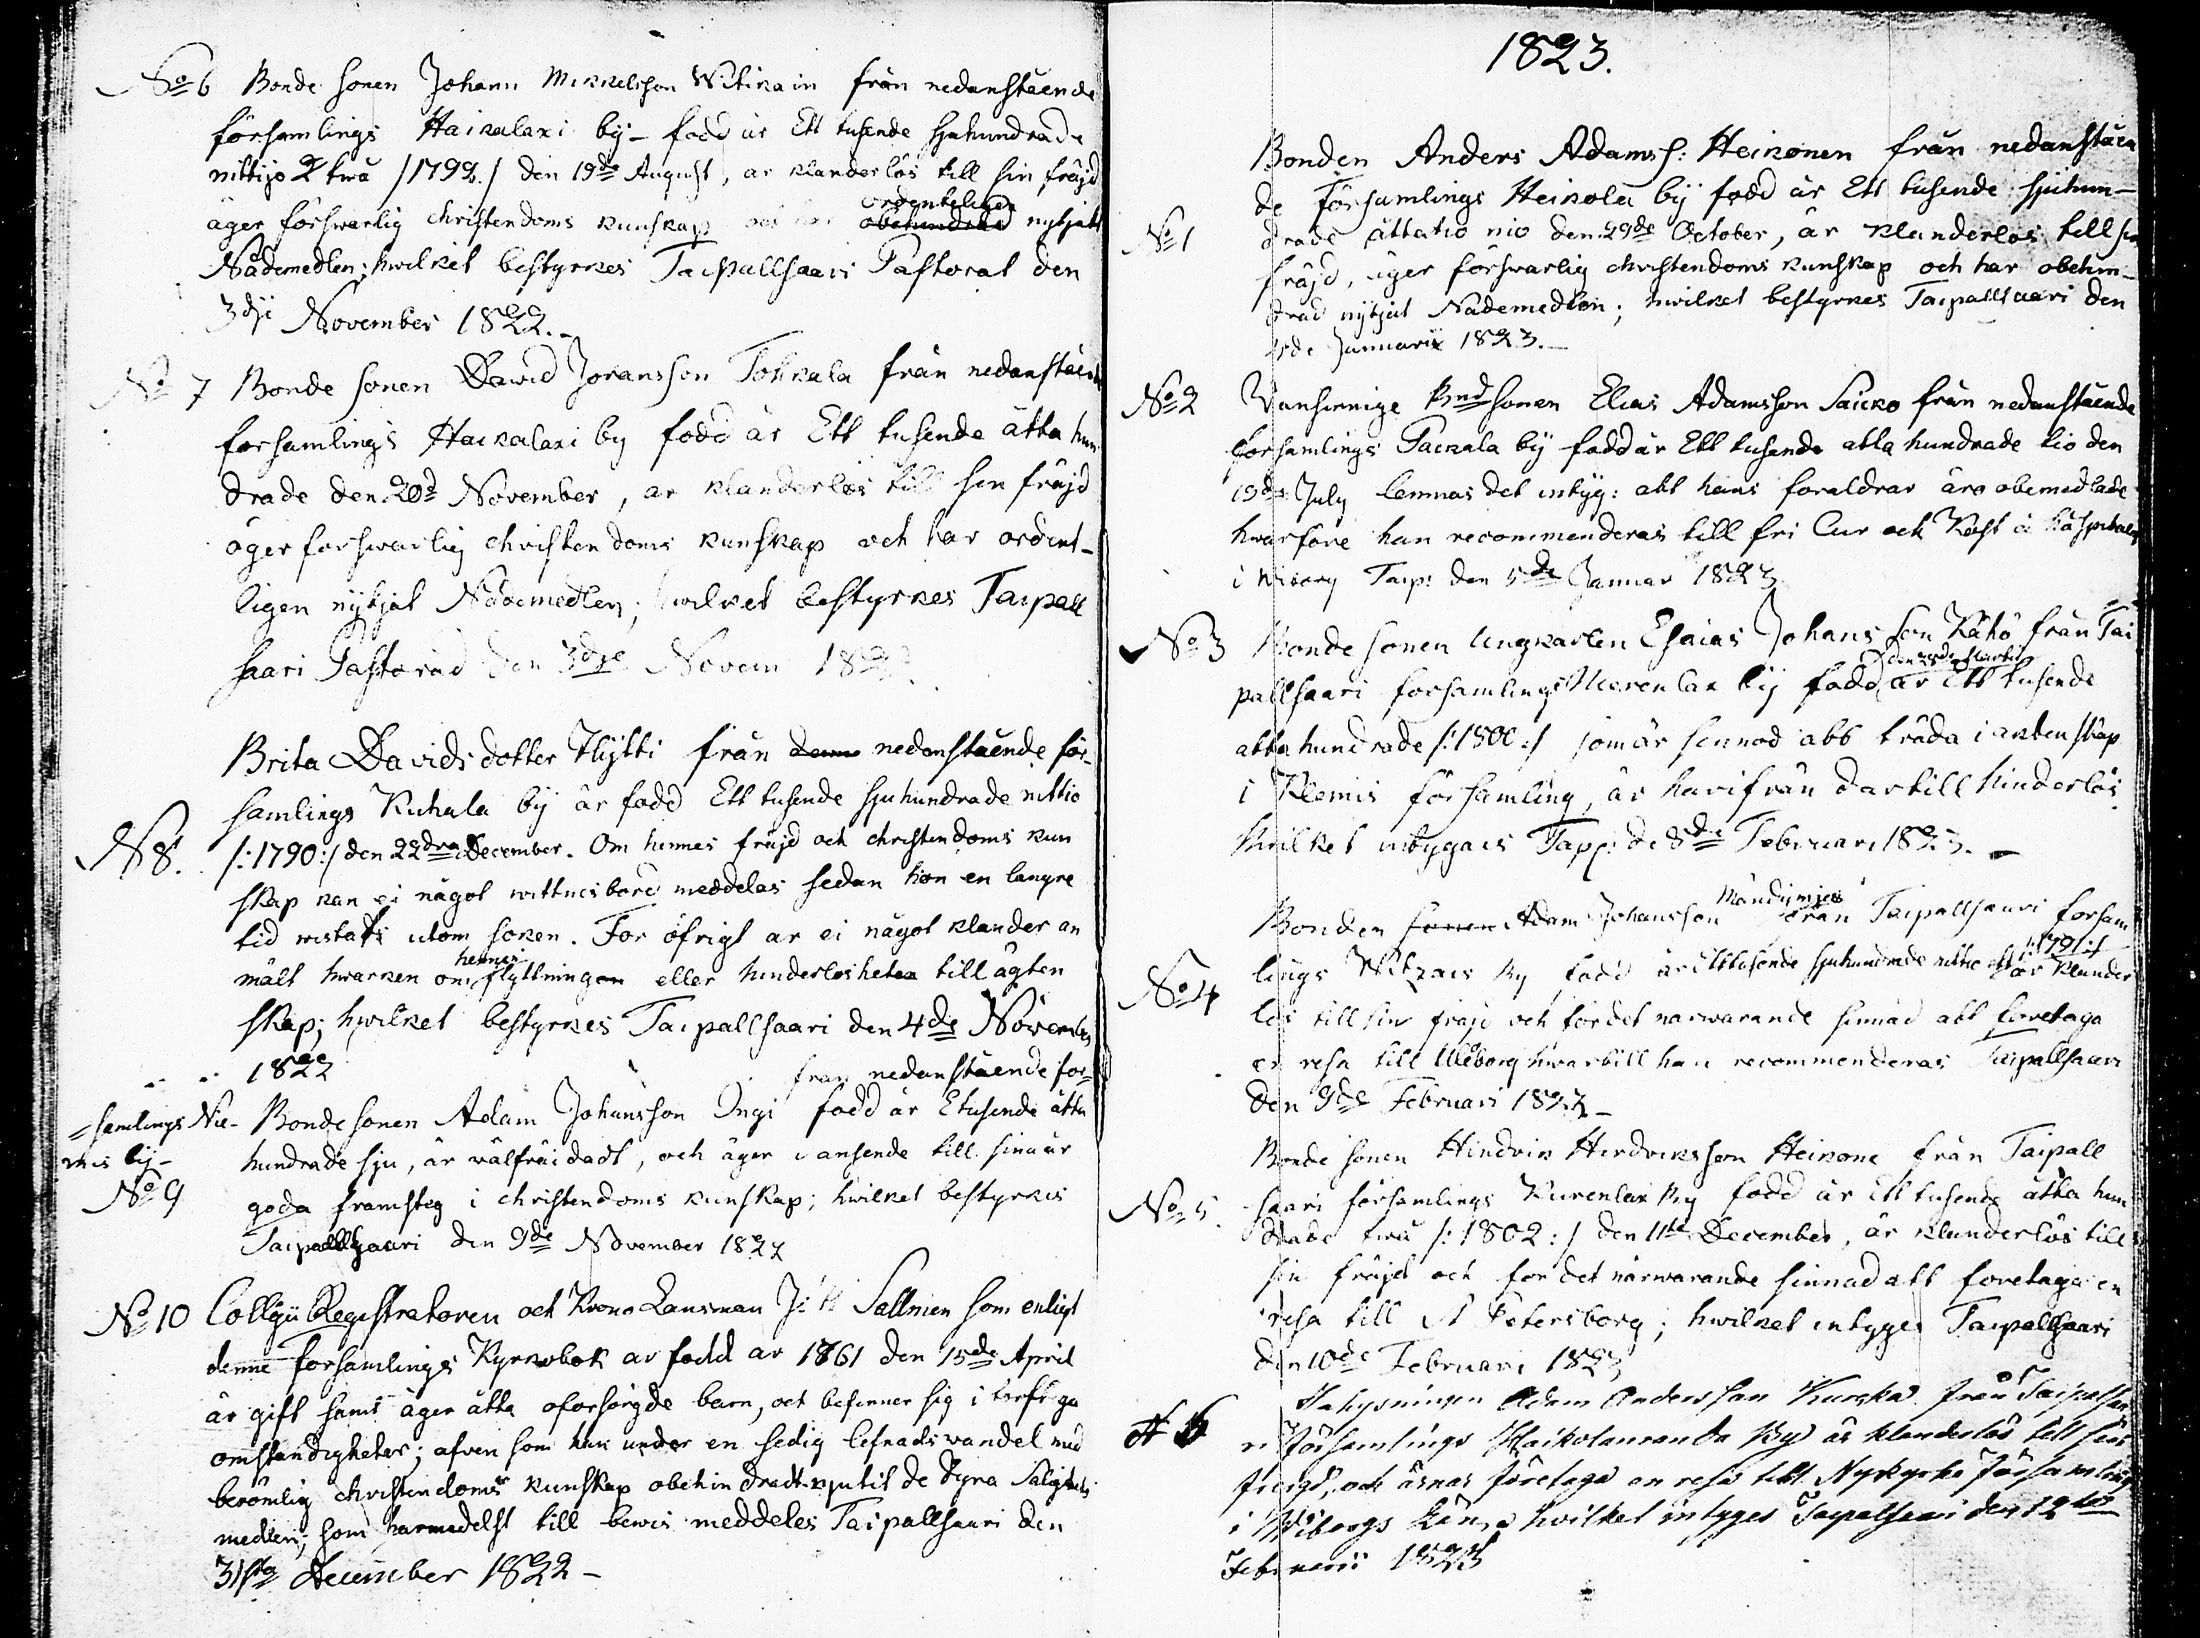 No 6 Bonde sonen Johann Mikkelsson Witikain från nedanstående
församlings Haikalaxi by – född år Ett tusende sjuhundrade
nittijo två /1792./ den 19de August, är klanderlös till sin fräjd
äger förswarlig christendoms kunskap och har ordenteligen obehindrad nytjatt
Nådemedlen; hwilket bestyrkes Taipallsaari Pastorat den
3dje November 1822. –
No 7 Bonde sonen David Joransson Tohkala från nedanstående
forsamlings Haikalaxi by född år Ett tusende åtta hun
drade den 20d November, är klanderlös till sin fräjd
äger forswarlig christendoms kunskap och har ordent–
ligen nytjat Nådemedlen; hwilket bestyrkes Taipall
saari Pastorad den 3dje Novem 1822.
Brita Davids dotter Hÿtti från denna nedanstående för–
samlings Kuhala by är född Ett tusende sjuhundrade nittio
No 8. /:1790:/ den 22dra December. Om hennes fräjd och christendoms kun
skap kan ei något wittnesbord meddelas sedan hon en langre
tid wistats utom soknen. For öfrigt ar ei något klander an
mält hwarken om hennes flyttningen eller hinderlösheten till ägten
skap; hwilket bestyrkes Taipallsaari den 4de Novemb
1822
från nedanstående för=
=samlings Nie- Bonde sonen Adam Johansson Ingi född år Etusende åtta
mis by– hundrade sju, är välfräidadt, och äger i ansende till sina år
No 9 goda framsteg i christendoms kunskap; hwilket bestyrkes
Taipallsaari den 9de November 1822
No 10 Collegii Registratoren och Krono Lansman Sallmen som enligt
denne forsamlings Kyrkobok ar född ar 1761 den 15de April
är gift samt äger åtta oforsörgde barn, och befinner sig i torftiga
omstandigheter; afven som han under en sedig lefnadswandel med
berömlig christendoms kunskap obehindradt njutit de dyra Salighets
medlen; som harmedelst till bewis meddeles Taipallsaari den
31sta December 1822 –
1823.
Bonden Anders Adamss: Heikonen från nedanståen
de Församlings Heikola by född år Ett tusende sjuhun–
No 1 drade åttatio nio den 29de October, är klanderlös till sin
fräjd, äger förswarlig christendoms kunskap och har obehin–
drad nytjat Nådemedlen; hwilket bestyrkes Taipallsaari den
5de Januarii 1823. –
No 2 Wansinnige Bndsonen Elias Adamsson Saiko från nedanstående
forsamlings Paikala by född år Ett tusende åtta hundrade tio den
19de July lemnas det intyg: att hans foraldrar äro obemedlade
hwarfore han recommenderas till fri Cur och Kost å häspitalet
i Wiborg Taip: den 5de Januar 1823
No 3 Bonde sonen Ungkarlen Esaias Johans son Kähö från Tai
pallsaari forsamlings by född den 28de Martii år Ett tusende
åtta hundrade /:1800:/ som är sinnad att träda i äktenskap
i Klemis församling, är harifrån dartill hinderlös
hwilket intygas Taip: d 8de Februari 1823. –
Bonden sonen Adam Johansson från Taipallsaari forsam
lings by född år Ett tusende sjuhundrade nittio ett /:1791:/ är klander
No 4 lös till sin fräjd och fördet narwarande sinnad att foretaga
en resa till Uleborg hwartill han recommenderas Taipallsaari
den 9de Februari 1823 –
Bonde sonen Hindrik Hindriksson Heikone från Taipall
No 5 saari församlings Kurenlax by född år Ett tusende åtta hun
drade twå /:1802:/ den 11te December, är klanderlös till
sin fräjd och for det närwarande sinnad att foretaga en
resa till St Petersborg; hwilket intyges Taipallsaari
den 10de Februari 1823
Inhysningen Adam Andersson Kurska från Taipalsaa
N 6 ri Församlings Haikolamanda By är klanderlös till sin
freigd, och ärnar företaga en resa till Nykyrka Församling
i Wiborgs Län, hvilket intyges Taipalsaari den 12te
Februarii 1823